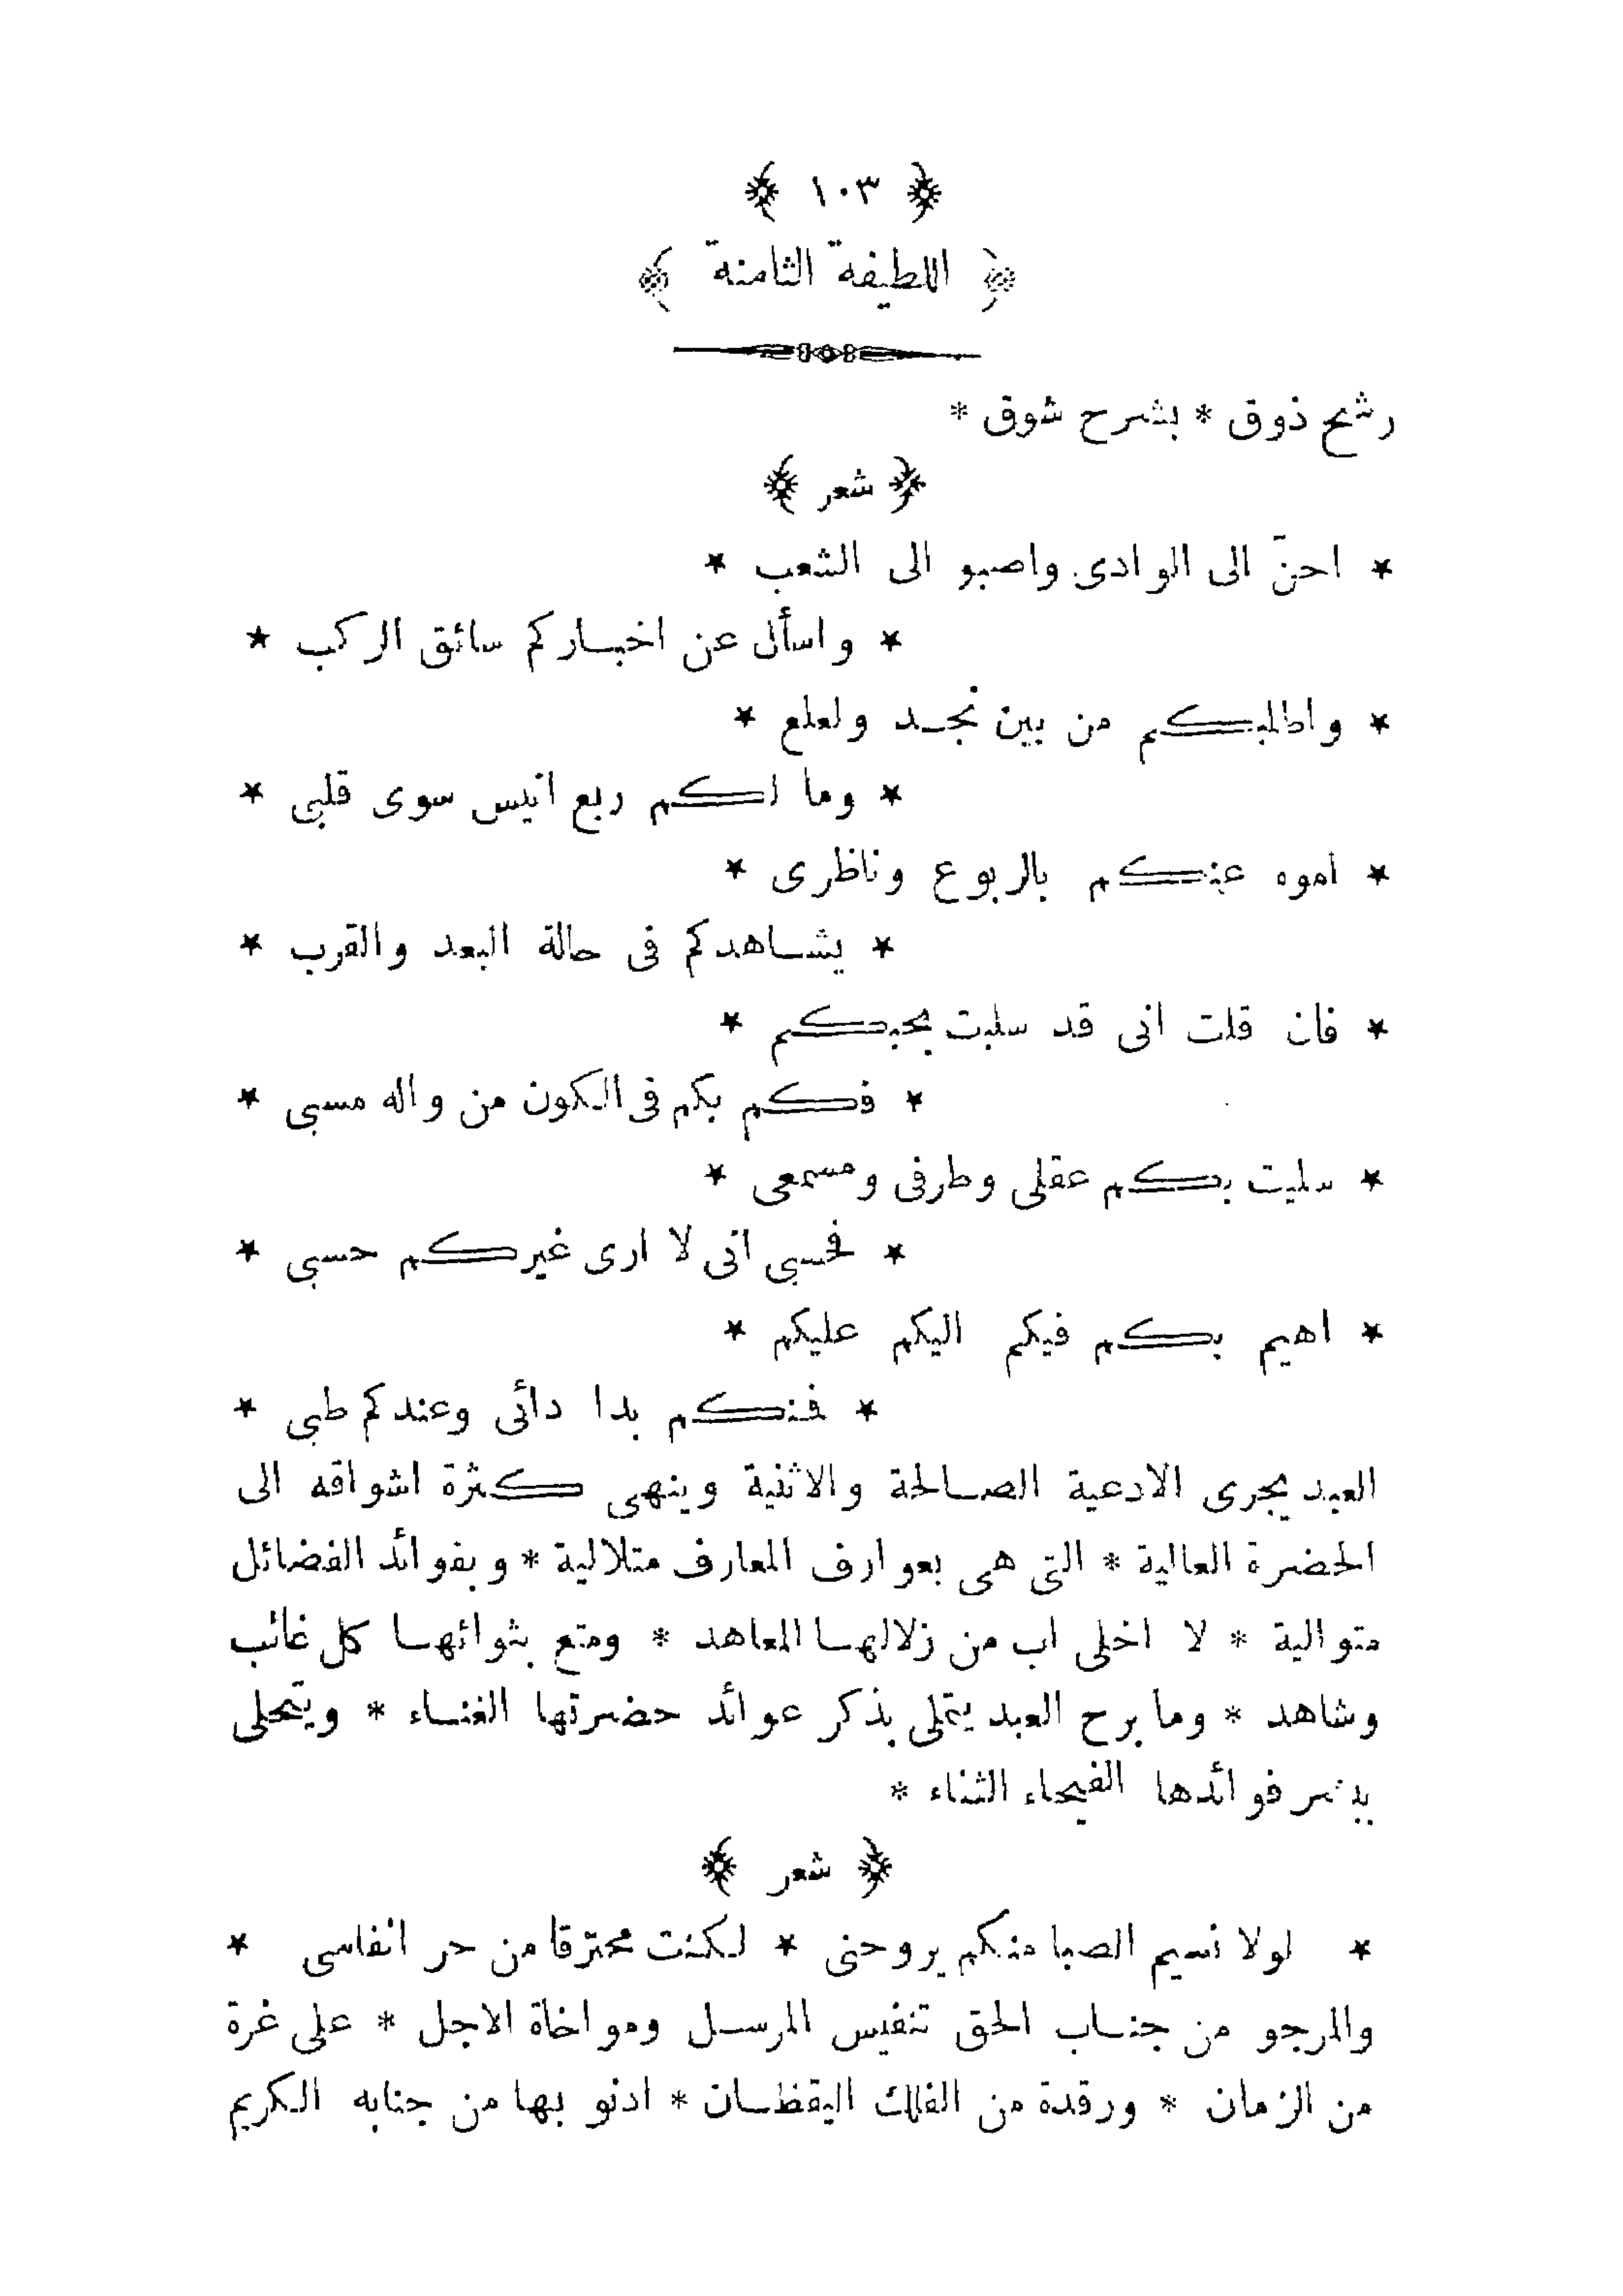 ﴿ ١٠٣ ﴾
﴿ اللطيفة الثامنة ﴾
رشح ذوق * بشرح شوق *
﴿ شعر ﴾
* احنّ الى الوادى واصبو الى الشعب *
* واسأل عن اخباركم سائق الركب *
* واطلبكم من بين نجد ولعلع *
* وما لكم ربع انيس سوى قلبى *
* اموه عنكم بالربوع وناظرى *
* يشاهدكم فى حالة البعد والقرب *
* فان قلت انى قد سلبت بحبكم *
* فكم بكم فى الكون من واله مسبى *
* سلبت بكم عقلى وطرفى ومسمعى *
* فحسبى انى لا ارى غيركم حسبى *
* اهيم بكم فيكم اليكم عليكم *
* فنكم بدا دائى وعندكم طبى *
العبد يجرى الادعية الصالحة والاثنية وينهى كثرة اشواقه الى
الحضرة العالية * التى هى بعوارف المعارف متلالية * وبفوائد الفضائل
متوالية * لا اخلى اب من زلالها المعاهد * ومتع بثوائها كل غائب
وشاهد * وما برح العبد يتملى بذكر عوائد حضرتها الغناء * ويتحلى
فوائدها الفيحاء الثناء *
﴿ شعر ﴾
* لولا نسيم الصبا منكم يروحنى * لكنت محترقا من حر انفاسى *
والمرجو من جناب الحق تنفيس المرسل ومواخاة الاجل * على غرة
من الزمان * ورقدة من الفلك اليقظان * ادنو بها من جنابه الكريم